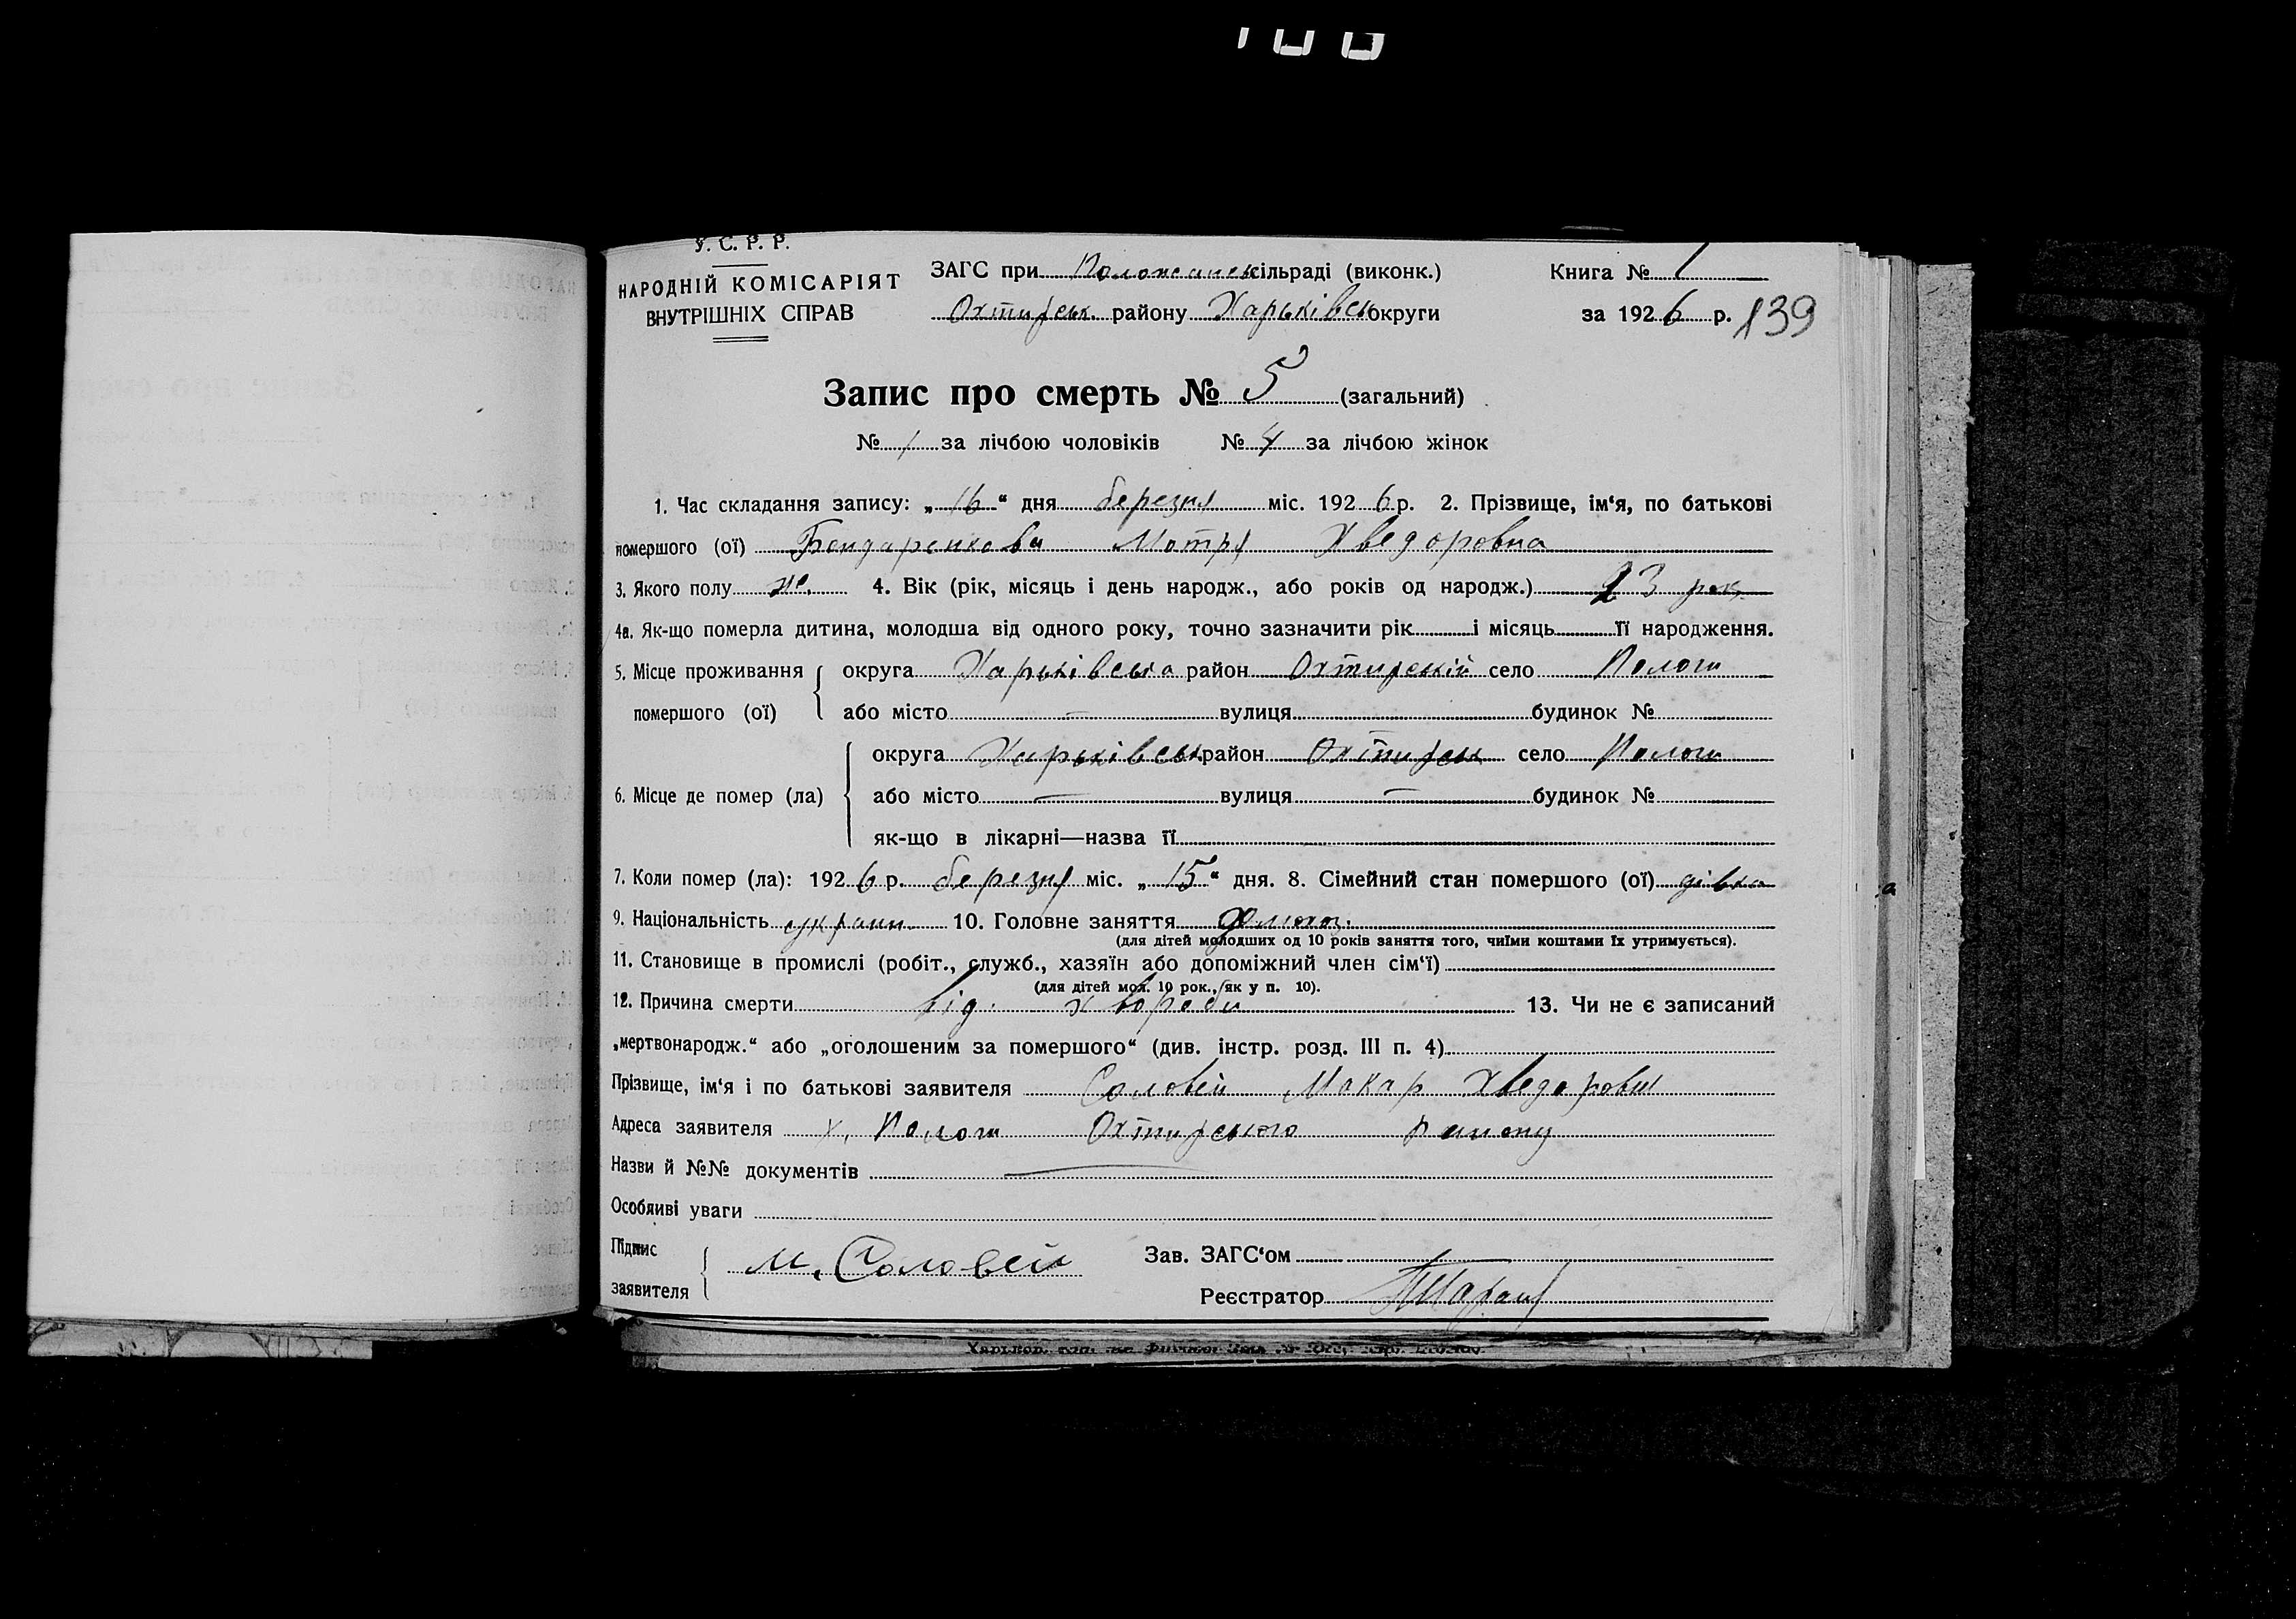 У. С. Р. Р.
НАРОДНІЙ КОМІСАРІЯТ
ВНУТРІШНІХ СПРАВ
ЗАГС при Положанськ сільраді (виконк.)
Охтирськ. району Харьківськ округи
Книга № 1
за 1926 р. 139
Запис про смерть № 5 (загальний)
№ 1 за лічбою чоловіків № 4 за лічбою жінок
1. Час складання запису: „16“ дня березня міс. 1926 р. 2. Прізвище, ім‘я, по батькові
помершого (ої) Бондаренкова Мотря Хведоровна
3. Якого полу ж. 4. Вік (рік, місяць і день народж., або років од народж.) 23 рок.
4а. Як-що померла дитина, молодша від одного року, точно зазначити рік і місяць її народження.
5. Місце проживання округа Харьківська район Охтирській село Пологи
помершого (ої) або місто — вулиця будинок №
округа Харьківськ район Охтирськ село Пологи
6. Місце де помер (ла) або місто — вулиця — будинок №
як-що в лікарні—назва її
7. Коли помер (ла): 1926 р. березня міс. „15“ дня. 8. Сімейний стан помершого (ої) дівка
9. Національність украин. 10. Головне заняття
(для дітей молодших од 10 років заняття того, чиїми коштами їх утримується).
11. Становище в промислі (робіт., служб., хазяїн або допоміжний член сім‘ї)
(для дітей мол. 10 рок., як у п. 10).
12. Причина смерти від хвороби 13. Чи не є записаний
„мертвонародж.“ або „оголошеним за помершого“ (див. інстр. розд. III п. 4)
Прізвище, ім‘я і по батькові заявителя Соловей Макар Хведорович
Адреса заявителя х. Пологи Охтирського району
Назви й №№ документів —
Особливі уваги
Підпис
заявителя М. Соловей
Зав. ЗАГС‘ом
Реєстратор